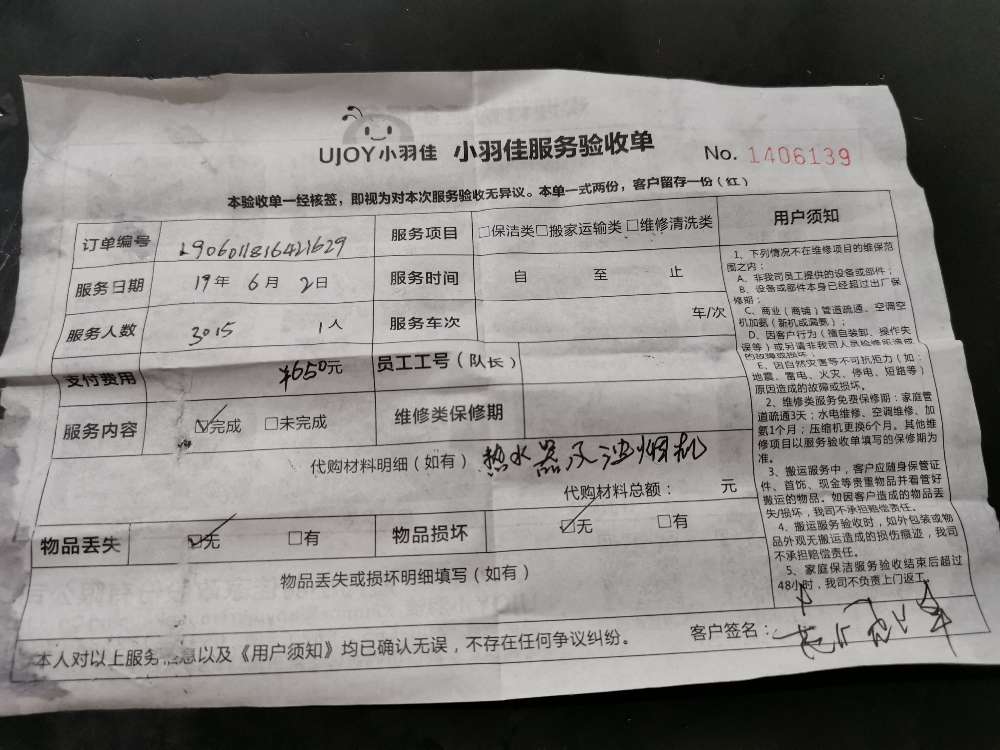 UJOY小羽佳 小羽佳服务验收单 No. 1406139
本验收单一经核签，即视为对本次服务验收无异议。本单一式两份，客户留存一份（红）
订单编号 1906011816421629 服务项目 □保洁类□搬家运输类□维修清洗类
服务日期 19年 6月 2日 服务时间 自 至 止
服务人数 3015 1人 服务车次 车/次
支付费用 ¥650元 员工工号（队长）
服务内容 ☑完成 □未完成 维修类保修期
代购材料明细（如有）热水器及油烟机
代购材料总额： 元
物品丢失 ☑无 □有 物品损坏 ☑无 □有
物品丢失或损坏明细填写（如有）
本人对以上服务信息以及《用户须知》均已确认无误，不存在任何争议纠纷。 客户签名：
用户须知
1、下列情况不在维修项目的维保范
围之内：
A、非我司员工提供的设备或部件；
B、设备或部件本身已经超过出厂保
修期；
C、商业（商铺）管道疏通、空调空
机加氨（新机或漏氨）；
D、因客户行为（擅自装卸、操作失
误等）或另请非我司人员检修所造成
的故障或损坏；
E、因自然灾害等不可抗拒力（如：
地震、雷电、火灾、停电、短路等）
原因造成的故障或损坏。
2、维修类服务免费保修期：家庭管
道疏通3天；水电维修、空调维修、加
氨1个月；压缩机更换6个月。其他维
修项目以服务验收单填写的保修期为
准。
3、搬运服务中，客户应随身保管证
件、首饰、现金等贵重物品并看管好
搬运的物品。如因客户造成的物品丢
失/损坏，我司不承担赔偿责任。
4、搬运服务验收时，如外包装或物
品外观无搬运造成的损伤痕迹，我司
不承担赔偿责任。
5、家庭保洁服务验收结束后超过
48小时，我司不负责上门返工。